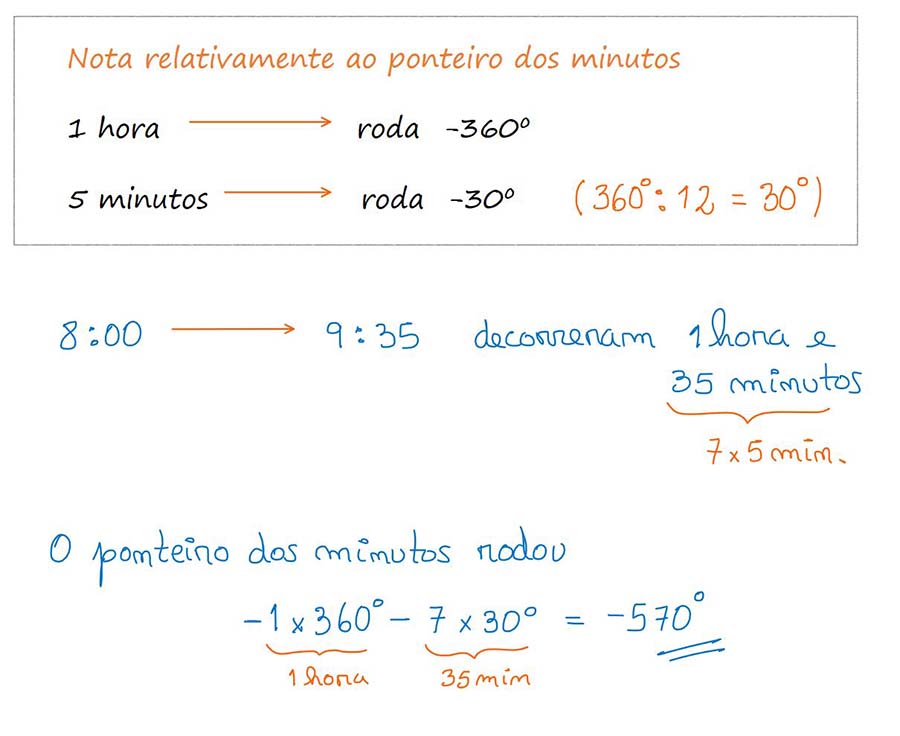 Nota relativamente ao ponteiro dos minutos
1 hora roda -360º
5 minutos roda -30º (360º:12 = 30º)
8:00 9:35 decorreram 1 hora e
35 minutos
7 x 5 min.
O ponteiro dos minutos rodou
-1 x 360º - 7 x 30º = -570º
1 hora 35 min